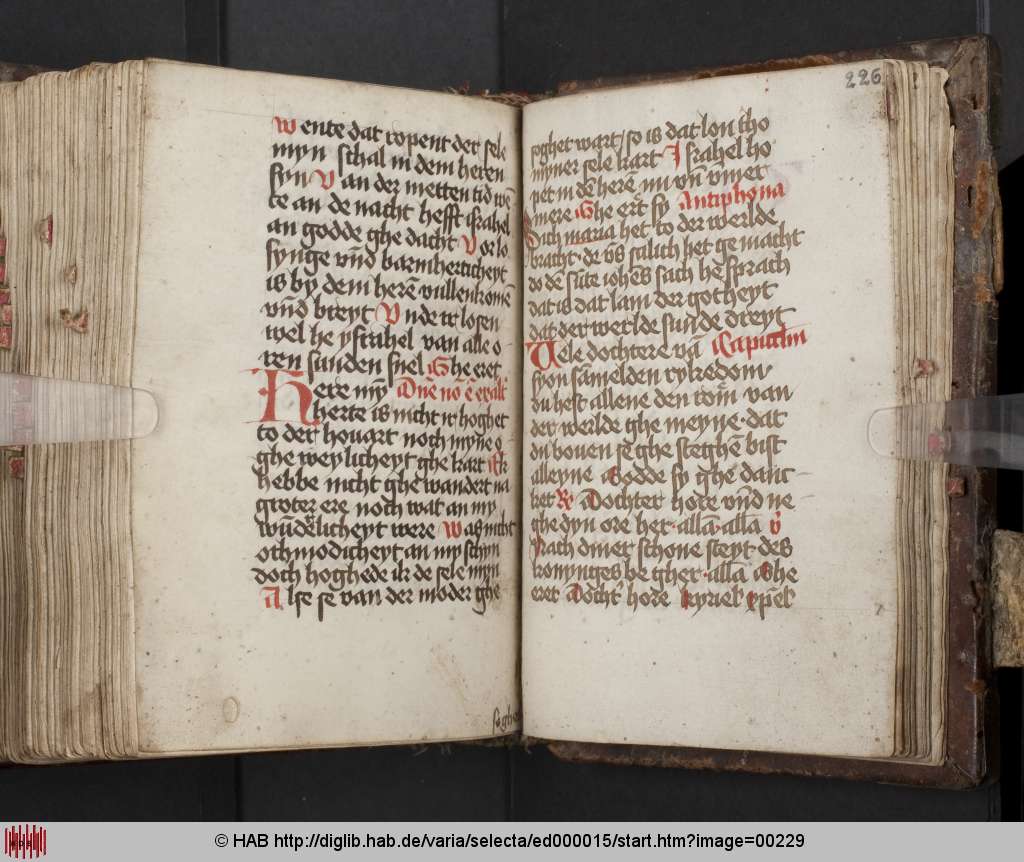 Wente dat ropent der sele
myn schal in dem heren
syn Van der metten tid wē
te an de nacht hefft israhel
an godde ghe dacht Vorlo
synge vnd barmherticheyt
is by dem herē vullenkomē
vnd breyt Vnde vor losen
wel he ysrahel van alle o
ren sunden snel Ghe eret
Here myn Dnē nō ē exalt
herte is nicht vor hoghet
to der houart noch myne o
ghe weylicheyt ghe kart Ik
hebbe nicht ghe wandert na
groter ere noch wat an my
wūderlicheyt were Was nicht
othmodicheyt an my schyn
doch hoghede ik de sele myn
Alse se van der moder ghe
soghe
226
soghet wart so is dat lon tho
myner sele kart Israhel ho
pet in dē herē nu vn̄ vmer
mere Ghe eret sy Antiphona
Dich maria het to der werlde
bracht de vns salich het ge macht
do dē sūte iohēs sach he sprach
dat is dat lam der gotheyt
dat der werlde sunde dreyt
Vele dochtere vā Capittm
syon sāmelden rykedom
du hest allene den rom van
der werlde ghe meyne dat
du bouen se ghe steghē bist
alleyne Godde sy ghe danc
ket R Dochter hore vnd ne
ghe dyn ore her allā allā V
Nach diner schone steyt des
konynges be gher allā Ghe
eret Docht hore kyriel xpēl
© HAB http://diglib.hab.de/varia/selecta/ed000015/start.htm?image=00229